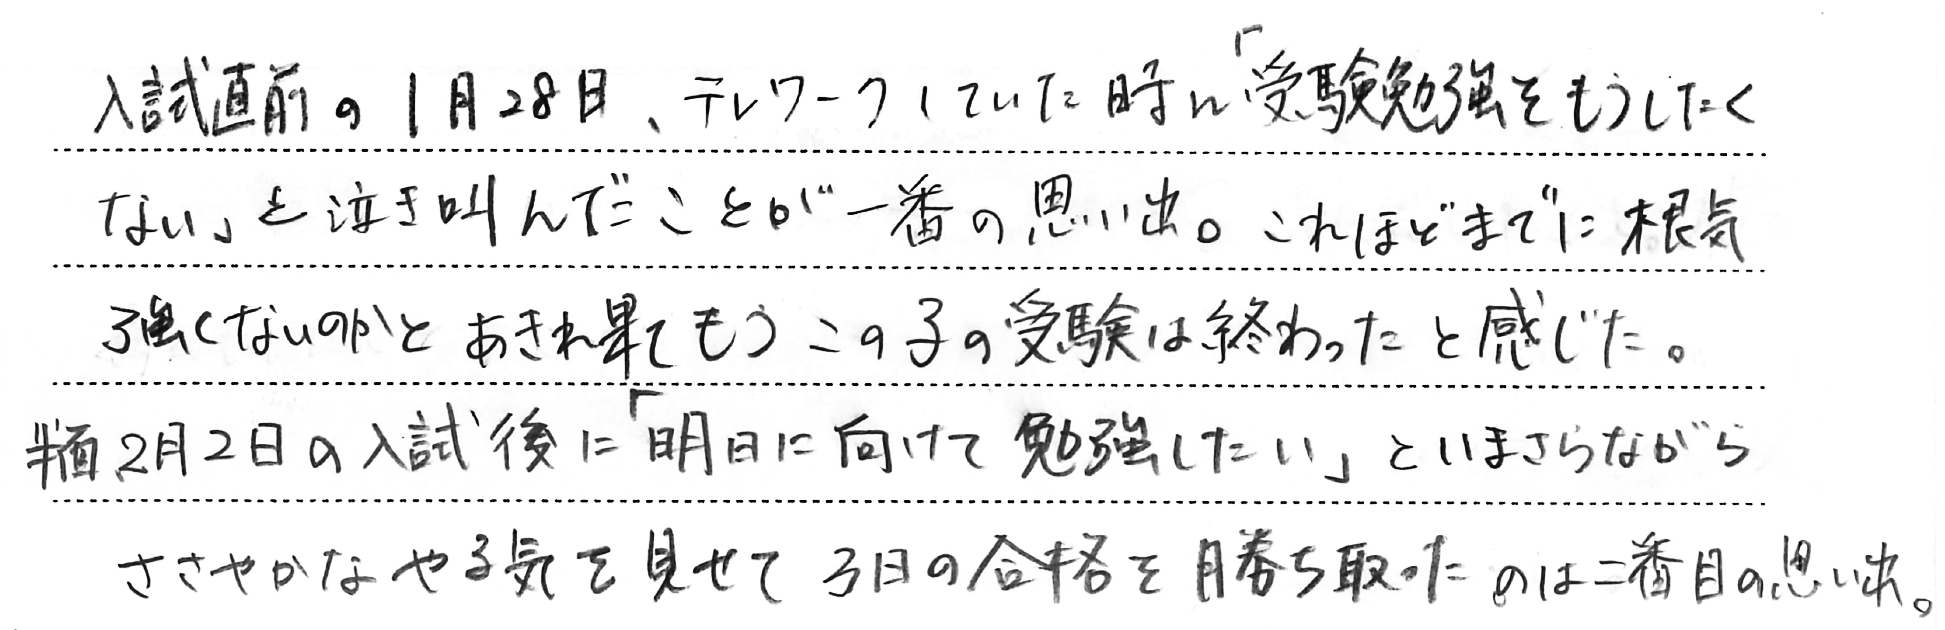 入試直前の1月28日、テレワークしていた時に「受験勉強をもうしたく
ない」と泣き叫んだことが一番の思い出。これほどまでに根気
強くないのかとあきれ果てもうこの子の受験は終わったと感じた。
2月2日の入試後に「明日に向けて勉強したい」といまさらながら
ささやかなやる気を見せて3日の合格を勝ち取ったのは二番目の思い出。